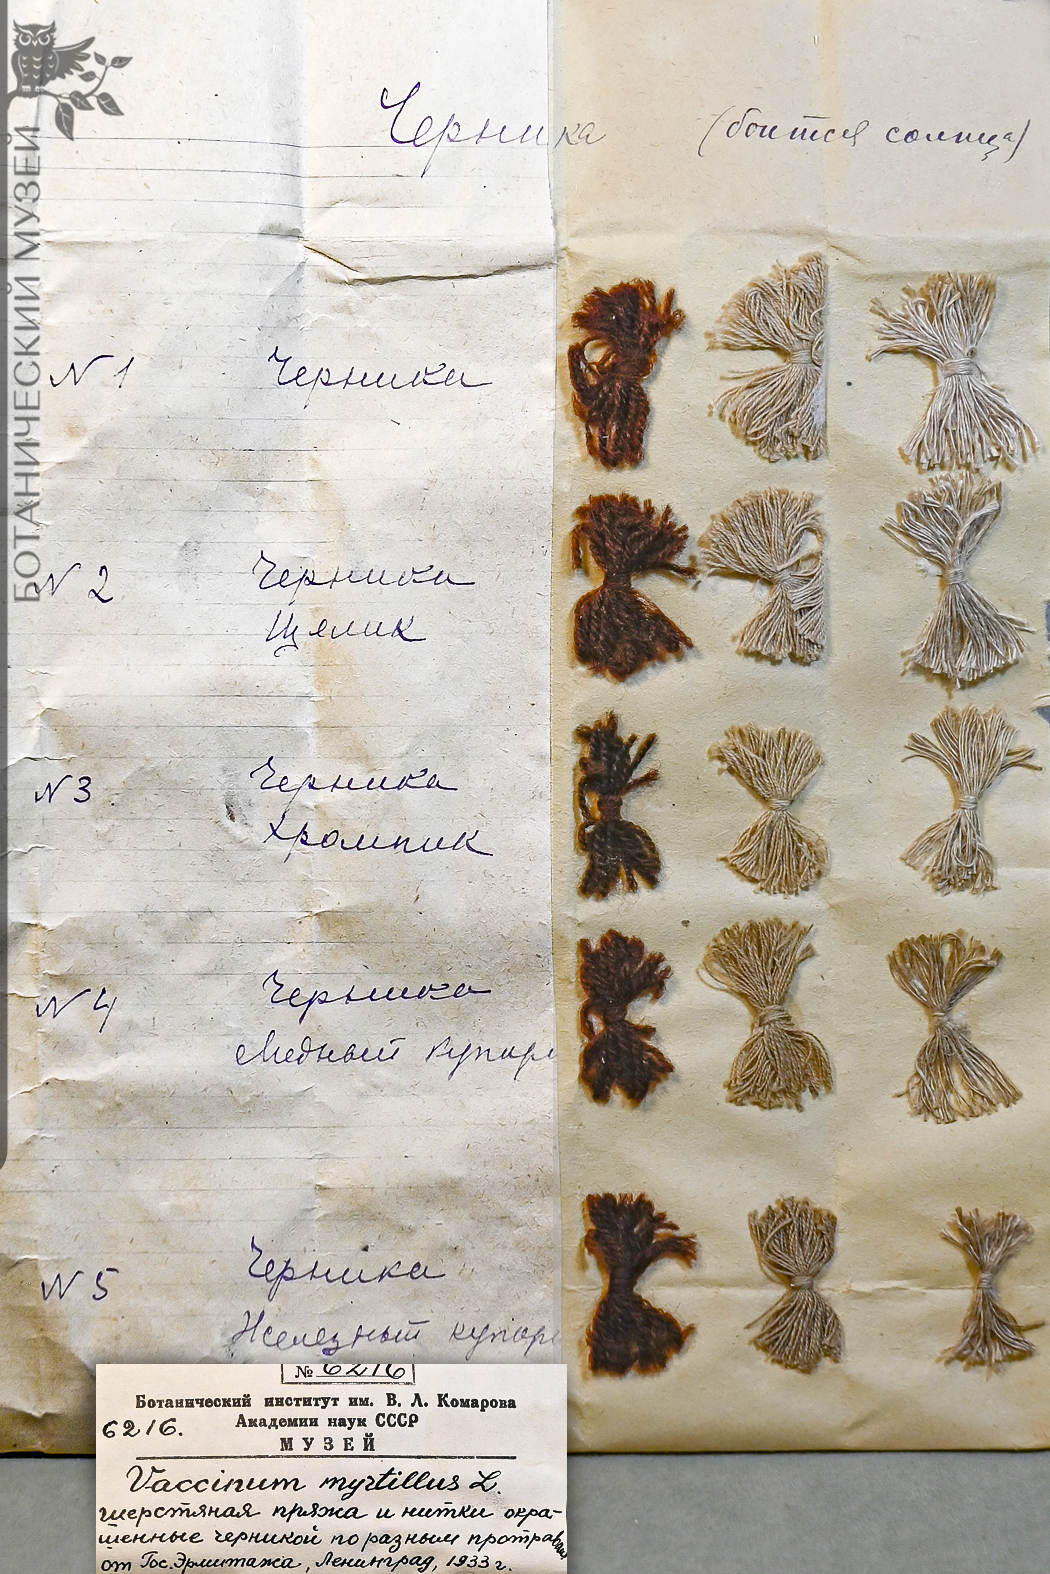 БОТАНИЧЕСКИЙ МУЗЕЙ
Черника (боится солнца)
N 1 Черника
N 2 Черника
Щелик
N 3 Черника
Хромпик
N 4 Черника
Медный купор
N 5 Черника
Железный купор
№ 6216
Ботанический институт им. В. Л. Комарова
6216. Академии наук СССР
МУЗЕЙ
Vaccinum myrtillus L.
шерстяная пряжа и нитки окра-
шенные черникой по разным протравам
от Гос. Эрмитажа, Ленинград, 1933 г.